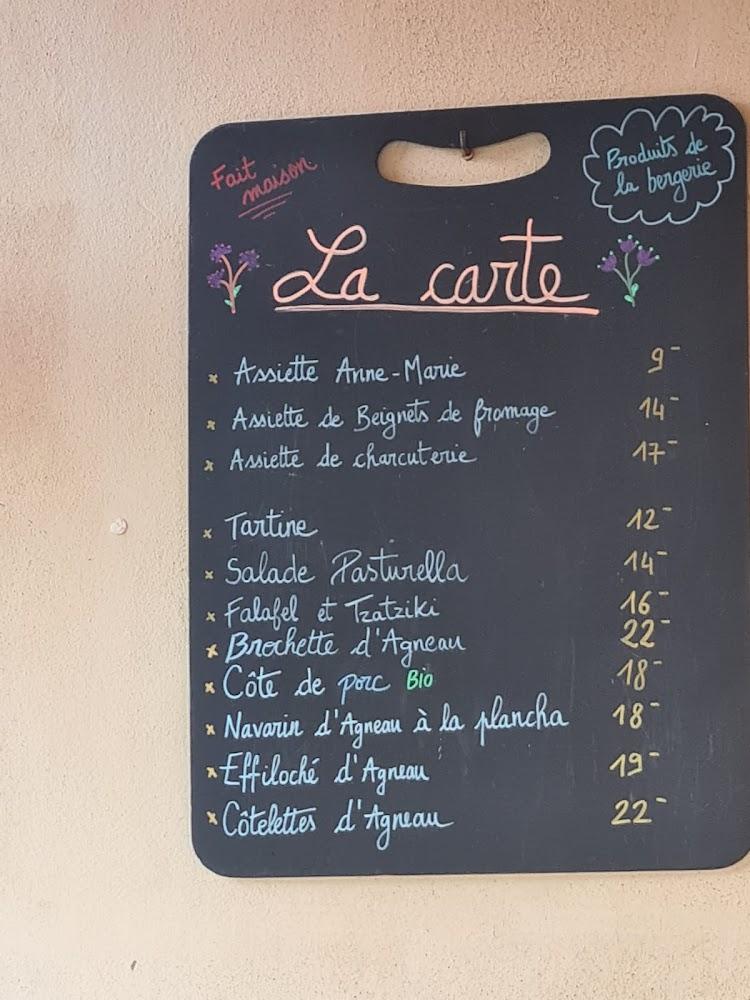 Fait
maison
Produits de
la bergerie
La carte
x Assiette Anne-Marie 9-
x Assiette de Beignets de fromage 14-
x Assiette de charcuterie 17-
x Tartine 12-
x Salade Pasturella 14-
x Falafel et Tzatziki 16-
x Brochette d'Agneau 22-
x Côte de porc Bio 18-
x Navarin d'Agneau à la plancha 18-
x Effiloché d'Agneau 19-
x Côtelettes d'Agneau 22-